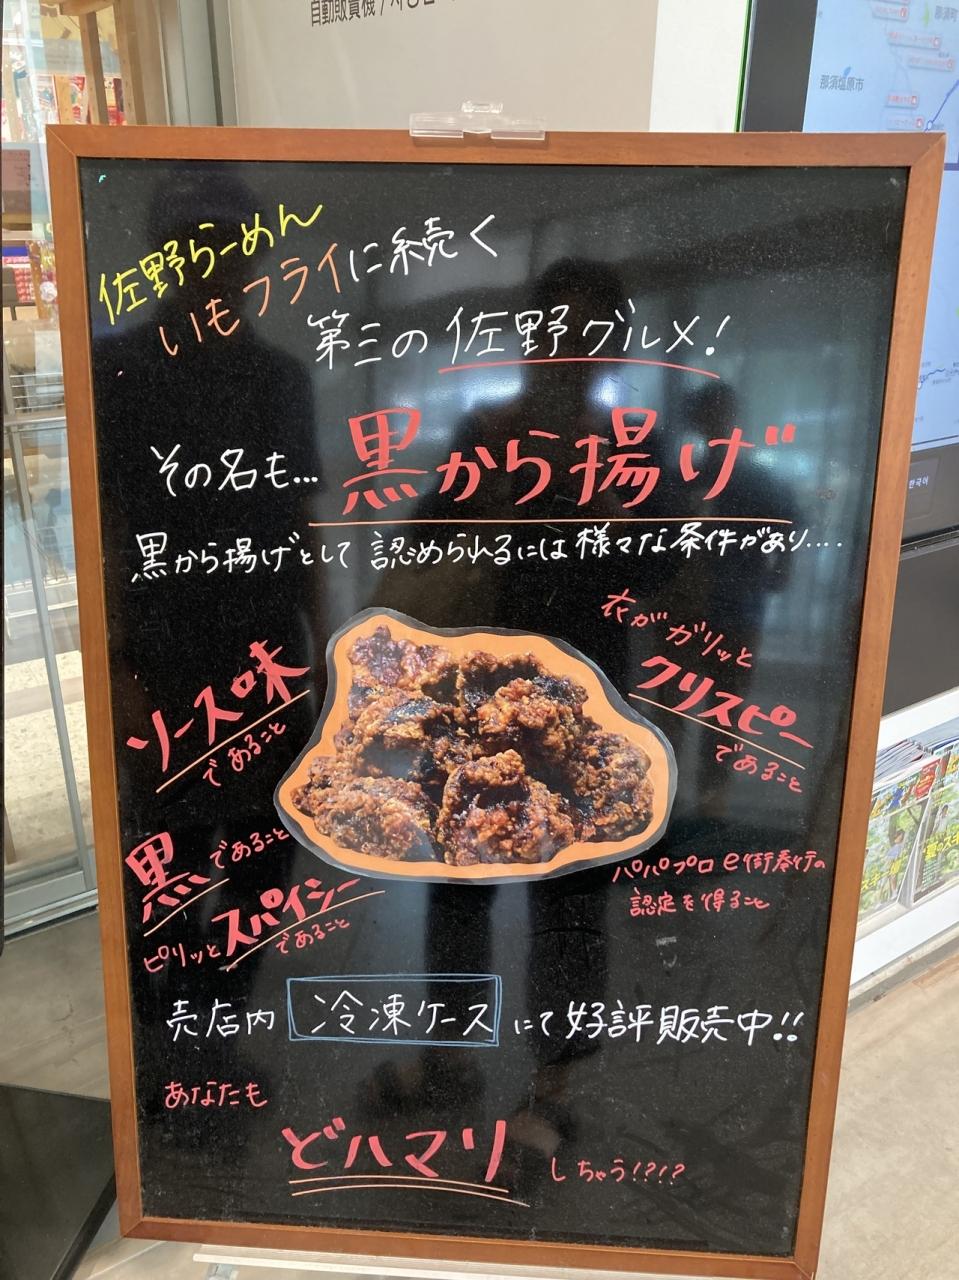 自動販賣機 /
那須町
那須塩原市
佐野らーめん
いもフライに続く
第三の佐野グルメ!
その名も… 黒から揚げ
黒から揚げとして認められるには様々な条件があり....
衣がガリッと
クリスピー
であること
ソース味
であること
黒であること
ピリッとスパイシー
であること
パパプロe街奉行の
認定を得ること
売店内 冷凍ケース にて好評販売中!!
あなたも
どハマり
しちゃう!?!?
한국어